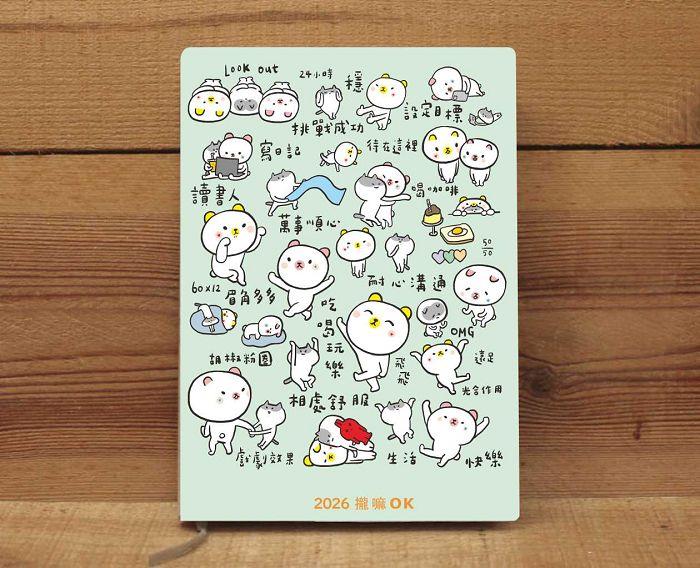 Look out
24小時
穩
設定目標
挑戰成功
寫日記
待在這裡
讀書人
喝咖啡
萬事順心
50
50
耐心溝通
60x12
眉角多多
吃
喝
玩
樂
OMG
胡椒粉圈
飛
飛
遠足
光合作用
相處舒服
OK
戲劇效果
生活
快樂
2026 攏嘛OK